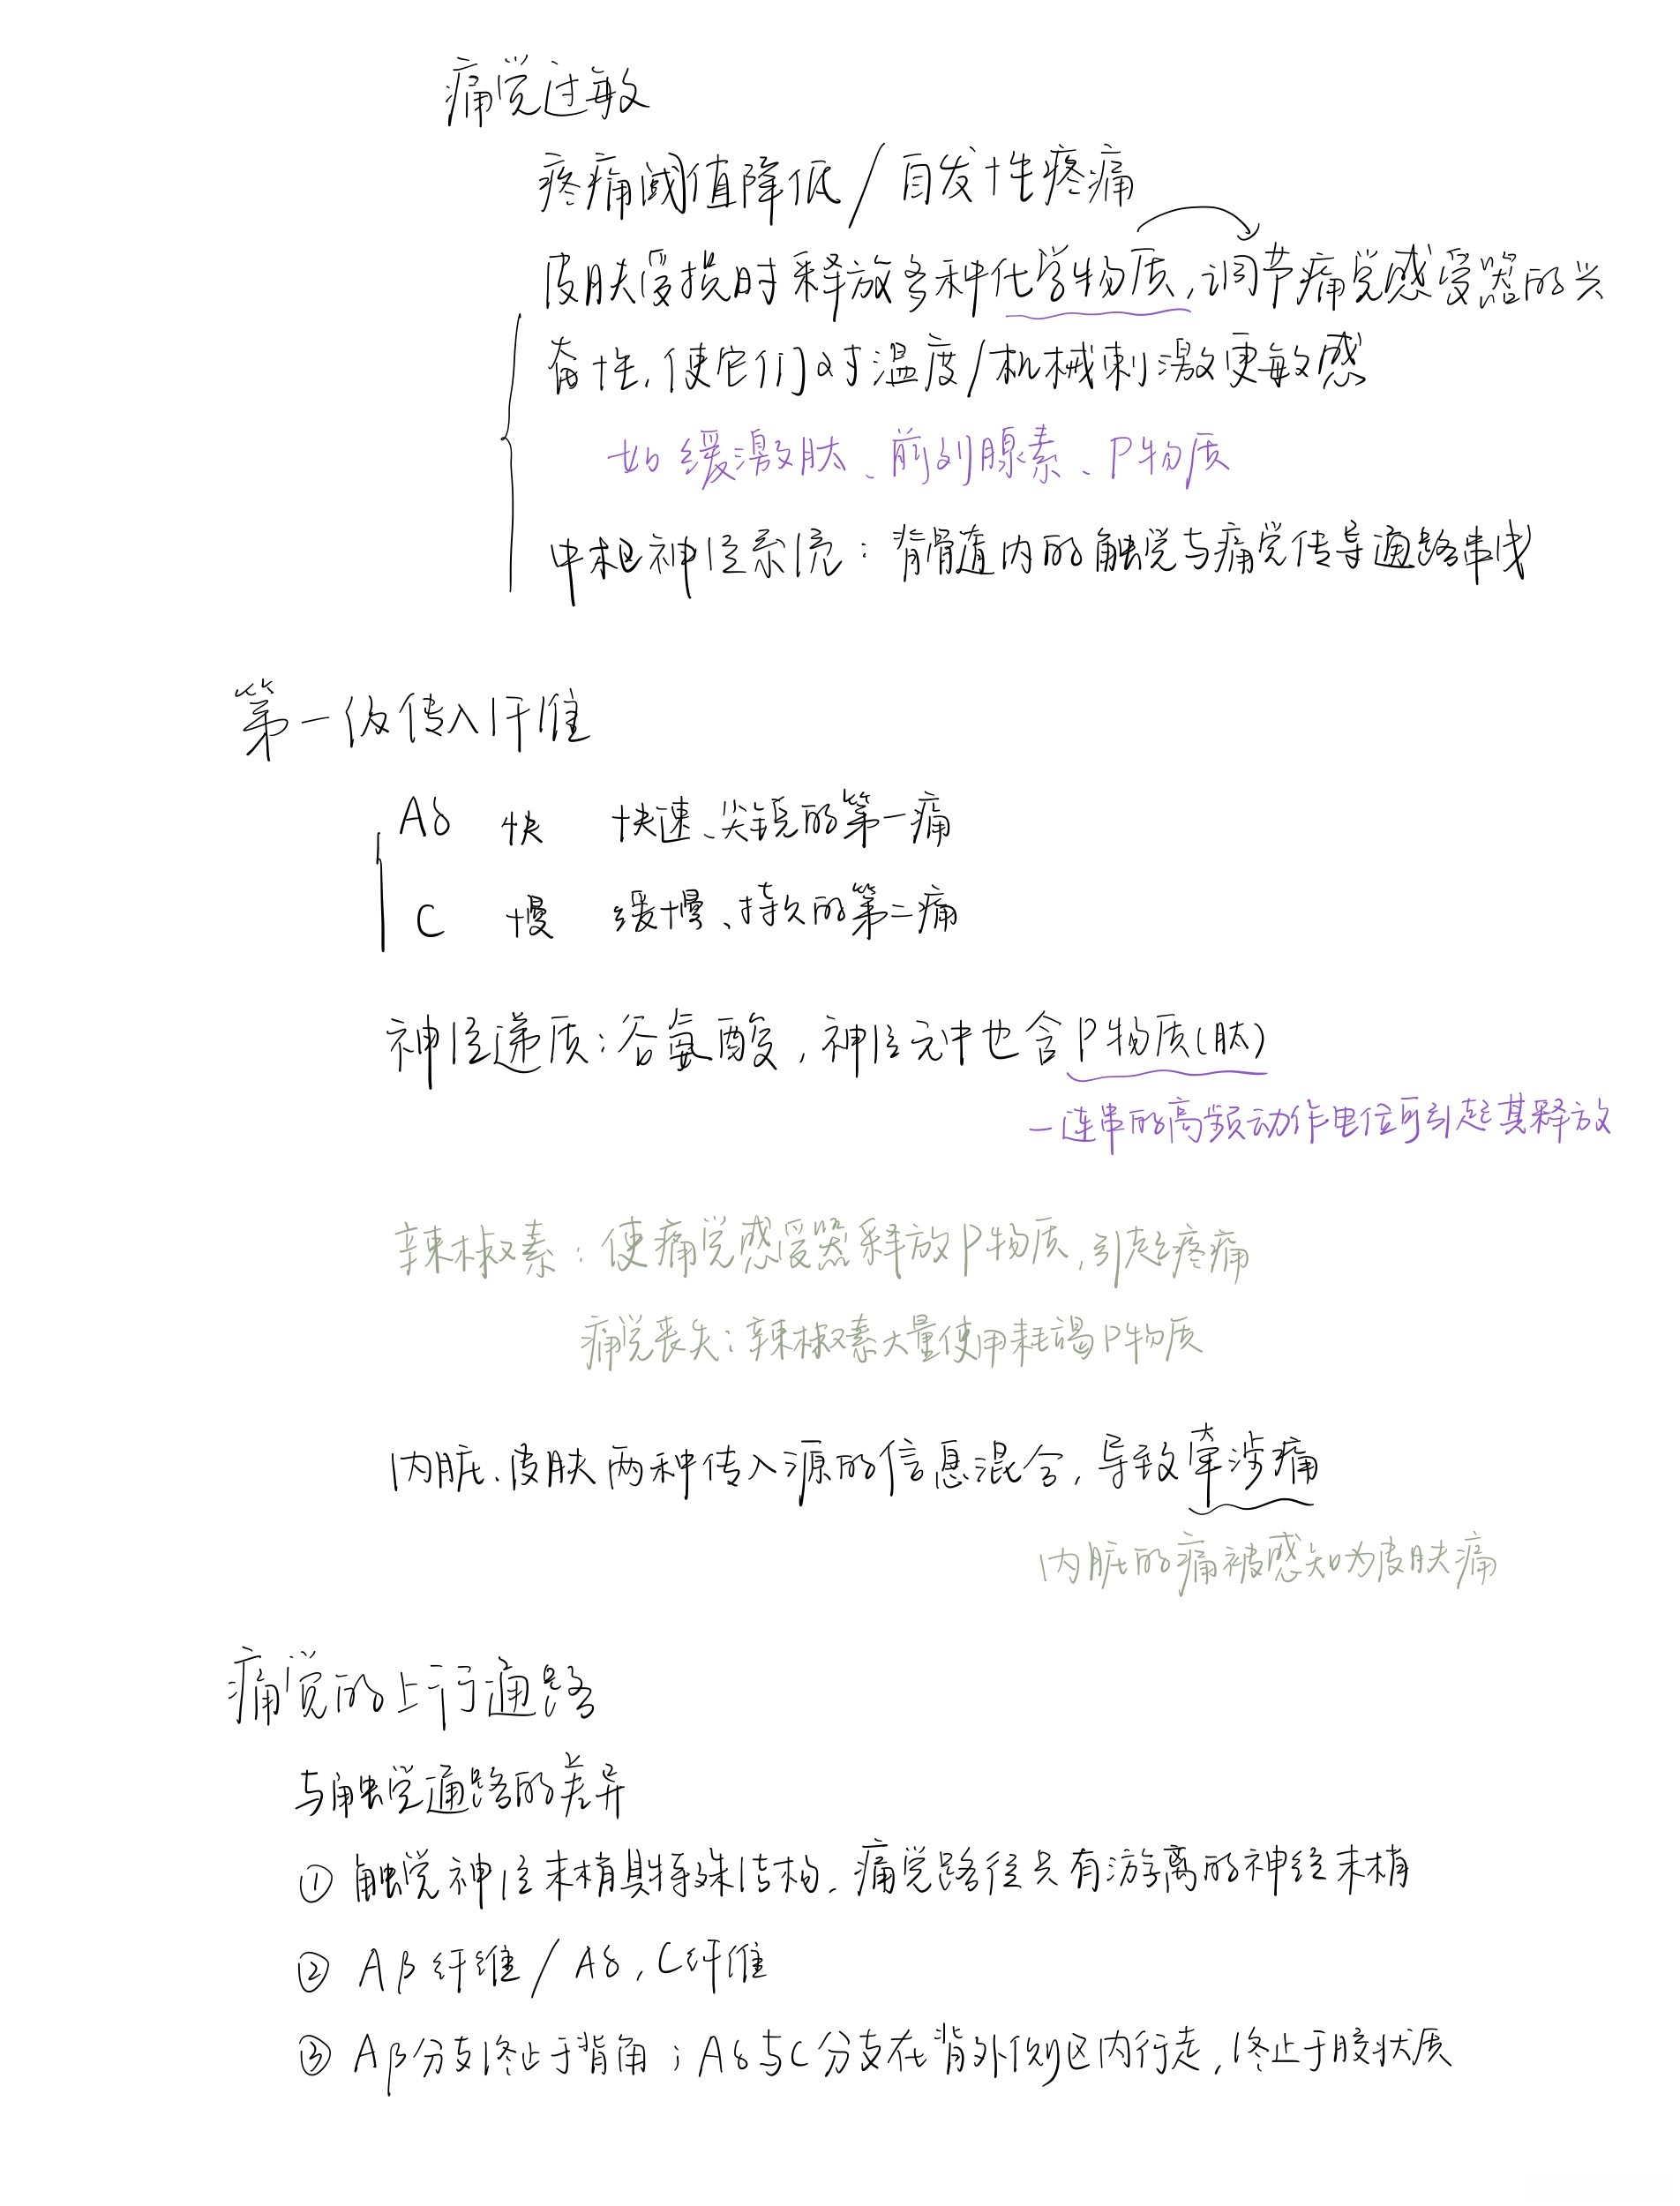 痛觉过敏
疼痛阈值降低/自发性疼痛
皮肤受损时释放多种化学物质,调节痛觉感受器的兴
奋性,使它们对温度/机械刺激更敏感
如缓激肽、前列腺素、P物质
中枢神经系统:背骨髓内的触觉与痛觉传导通路串线
第一级传入纤维
Aδ 快 快速、尖锐的第一痛
C 慢 缓慢、持久的第二痛
神经递质:谷氨酸,神经元中也含P物质(肽)
一连串的高频动作电位可引起其释放
辣椒素:使痛觉感受器释放P物质,引起疼痛
痛觉丧失:辣椒素大量使用耗竭P物质
内脏、皮肤两种传入源的信息混合,导致牵涉痛
内脏的痛被感知为皮肤痛
痛觉的上行通路
与触觉通路的差异
① 触觉神经末梢具特殊结构,痛觉路径只有游离的神经末梢
② Aβ纤维/Aδ,C纤维
③ Aβ分支终止于背角;Aδ与C分支在背外侧区内行走,终止于胶状质